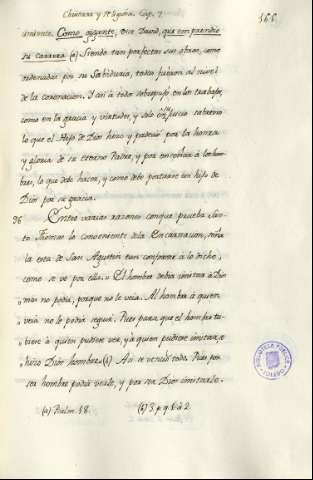 Cap. 7
166.
Como gigante, dice David, que emprendio
su carrera (a) Siendo tan perfectas sus obras, como
ordenadas por su Sabiduria, todas fueron al nivel
de la coronacion. Y asi à todos sobrepujó en los trabajos,
como en la gracia y virtudes, y solo juicio cabal
lo que el Hijo de Dios hizo y padeció por la honra
y gloria de su eterno Padre, y por enseñar à los hom-
bres, lo que debe hacer, y como debe portarse un hijo de
Dios por su gracia.
36 Entre varias razones conque prueba San-
to Thomas lo conveniente de la Encarnacion, señala
la esta de San Agustin tan conforme à lo dicho,
como se ve por ella. El hombre debia imitar à Dios
mas no podia, porque no le veia. Al hombre à quien
veia no le podia seguir. Pues para que el hombre tu-
biese à quien pudiese ver, y à quien pudiese imitar, se
hizo Dios hombre. (b) Asi se venció todo. Pues por
ser hombre podia verle, y por ser Dios imitarle.
(a) Psalm. 18. (b) 3. p. q. 1. a. 2.
BIBLIOTECA PUBLICA
TOLEDO